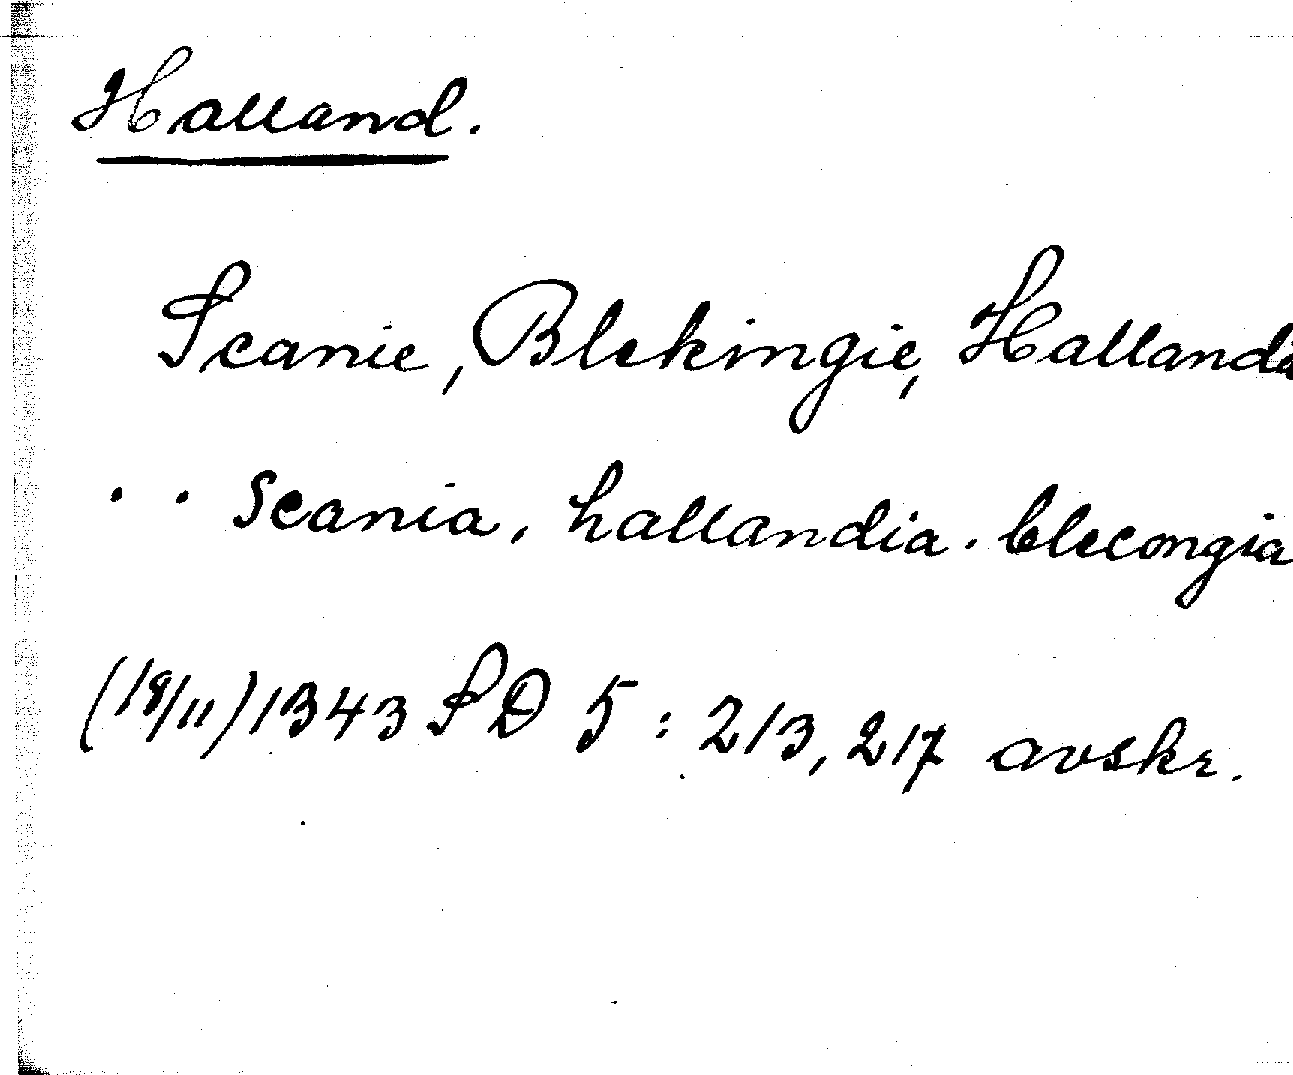 Halland.
Scanie, Blekingie, Hallandi
. . Scania, hallandia. blecongia
(18/11) 1343 SD 5: 213, 217 avskr.